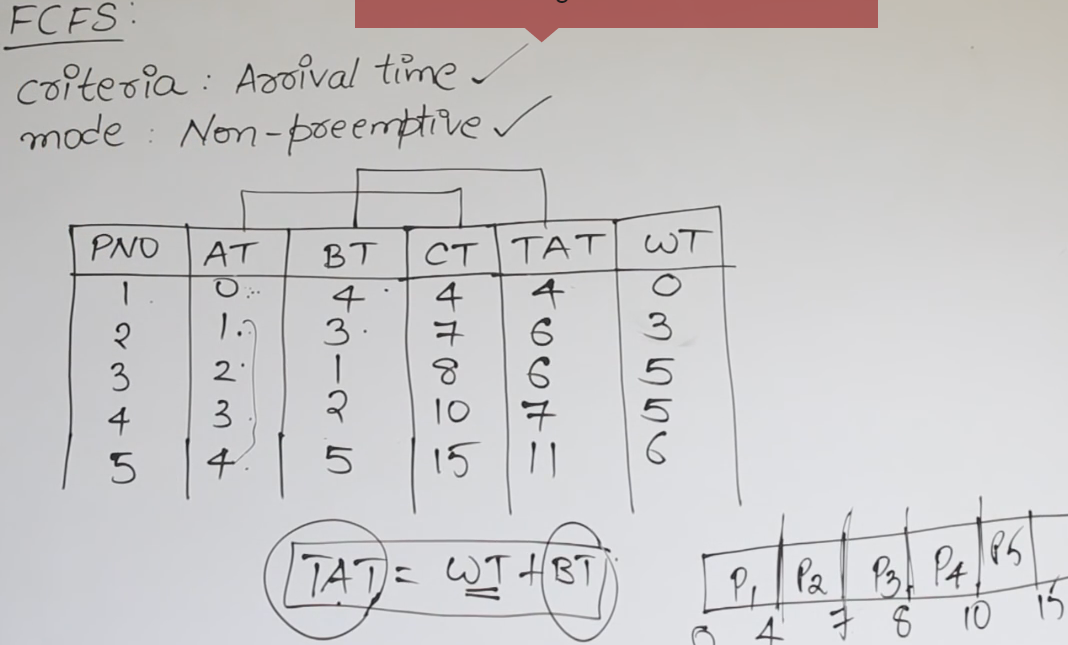 FCFS:
criteria : Arrival time ✓
mode : Non-preemptive ✓
PNO AT BT CT TAT WT
1 0 4 4 4 0
2 1 3 7 6 3
3 2 1 8 6 5
4 3 2 10 7 5
5 4 5 15 11 6
TAT = WT + BT
P1 P2 P3 P4 P5
0 4 7 8 10 15